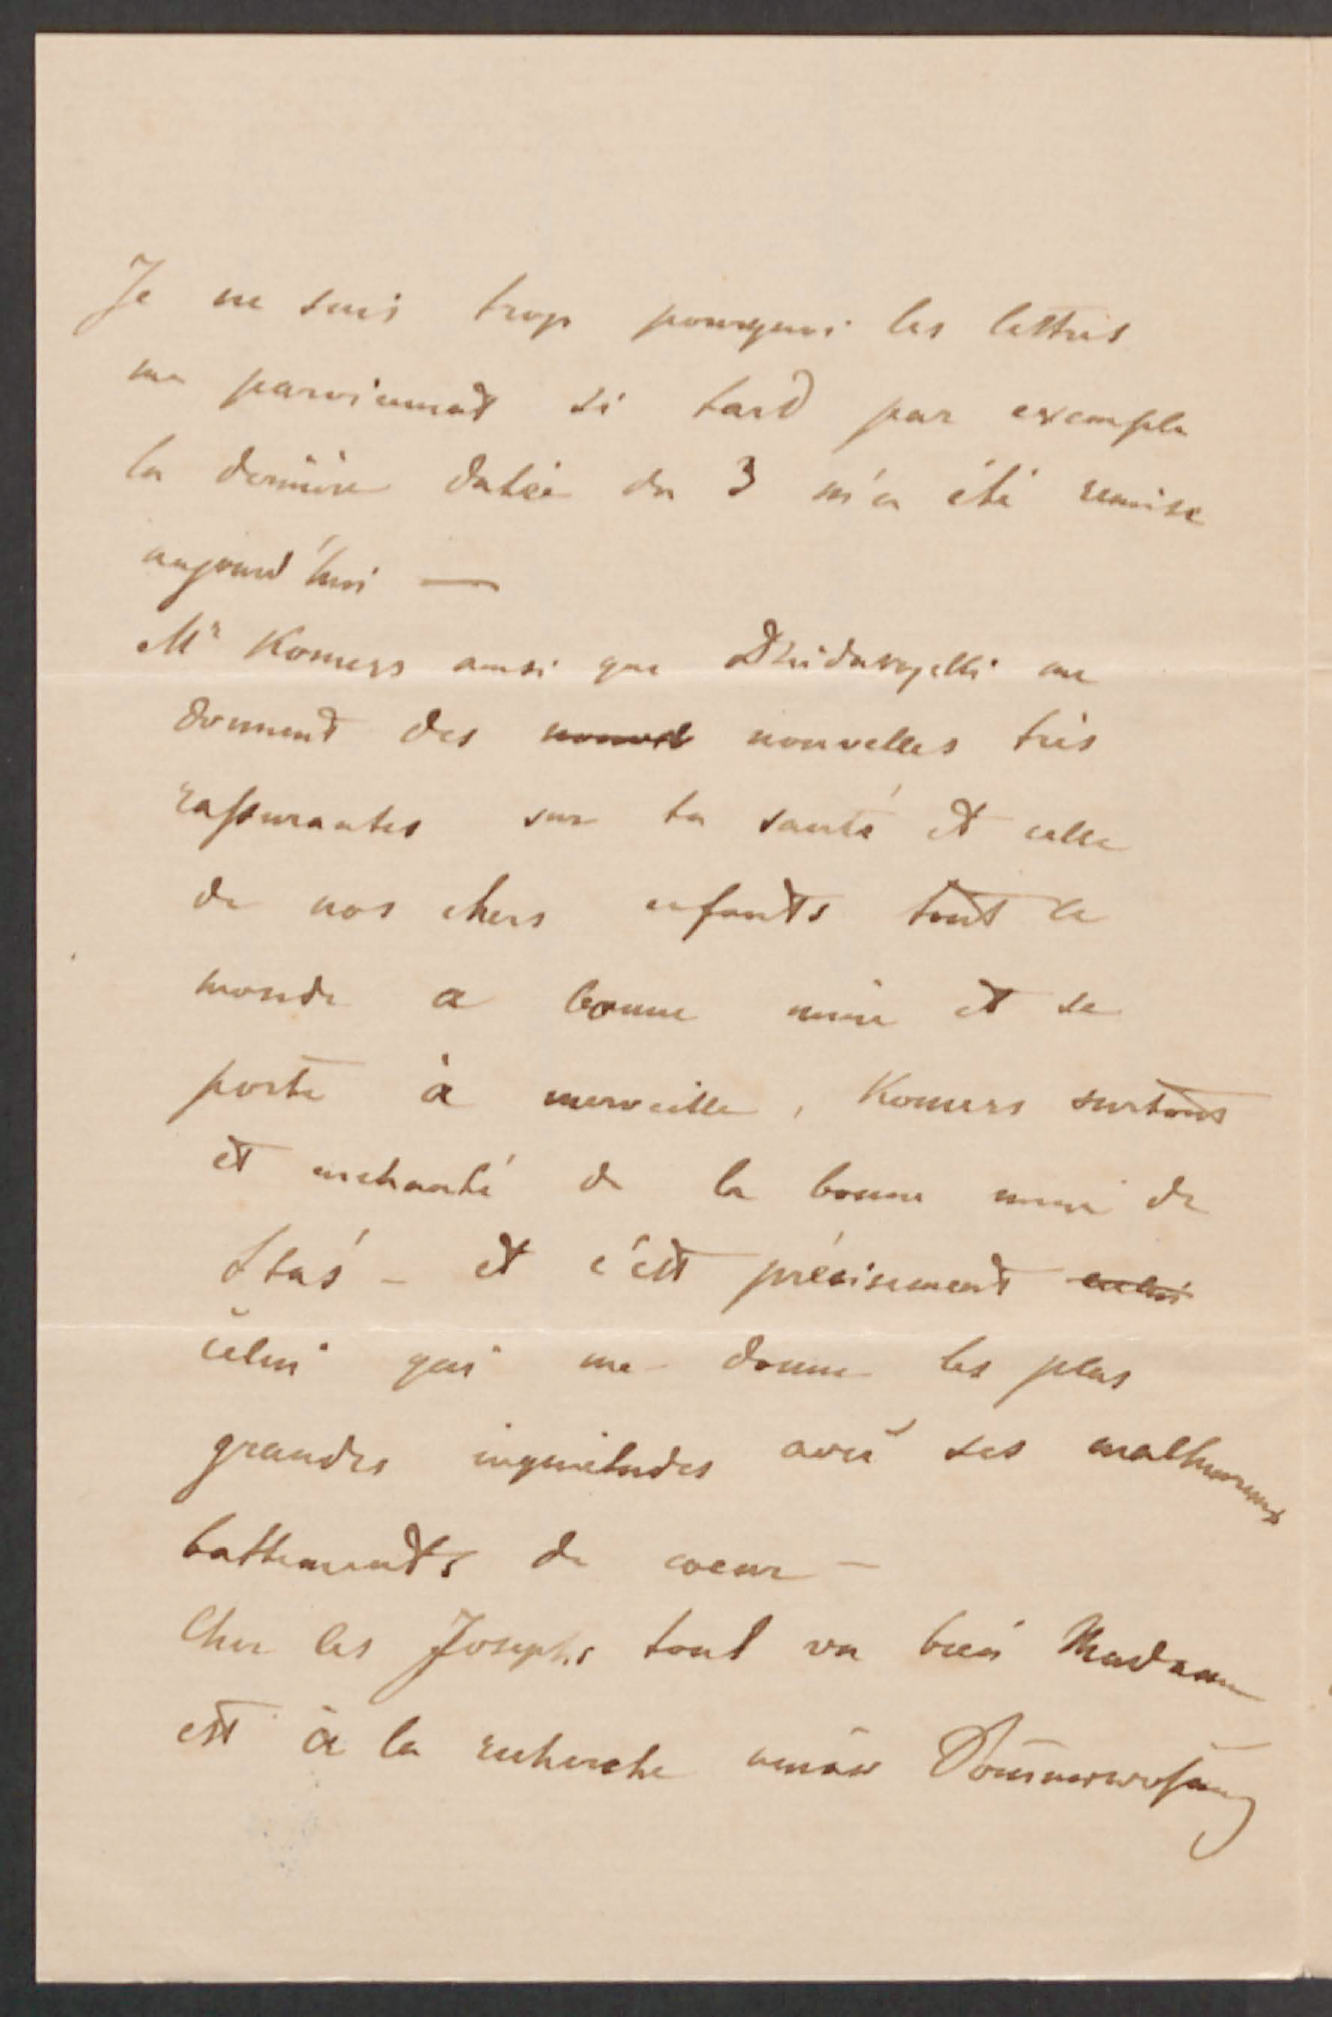 Je ne sais trop pourquoi les lettres
me parviennent si tard par exemple
la dernière datée du 3 m'a été remise
aujourd'hui —
Mr Komers ainsi que me
donnent des nouvelles très
rassurantes sur ta santé et celle
de nos chers enfants tout le
monde a bonne mine et se
porte à merveille, Komers surtout
et enchanté de la bonne mine de
Staś – et c'est précisement celui
celui qui me donne les plus
grandes inquiétudes avec ses malheureux
battements de coeur –
Chez les Josephs tout va bien Madame
est à la recherche einer Sommerwohnung